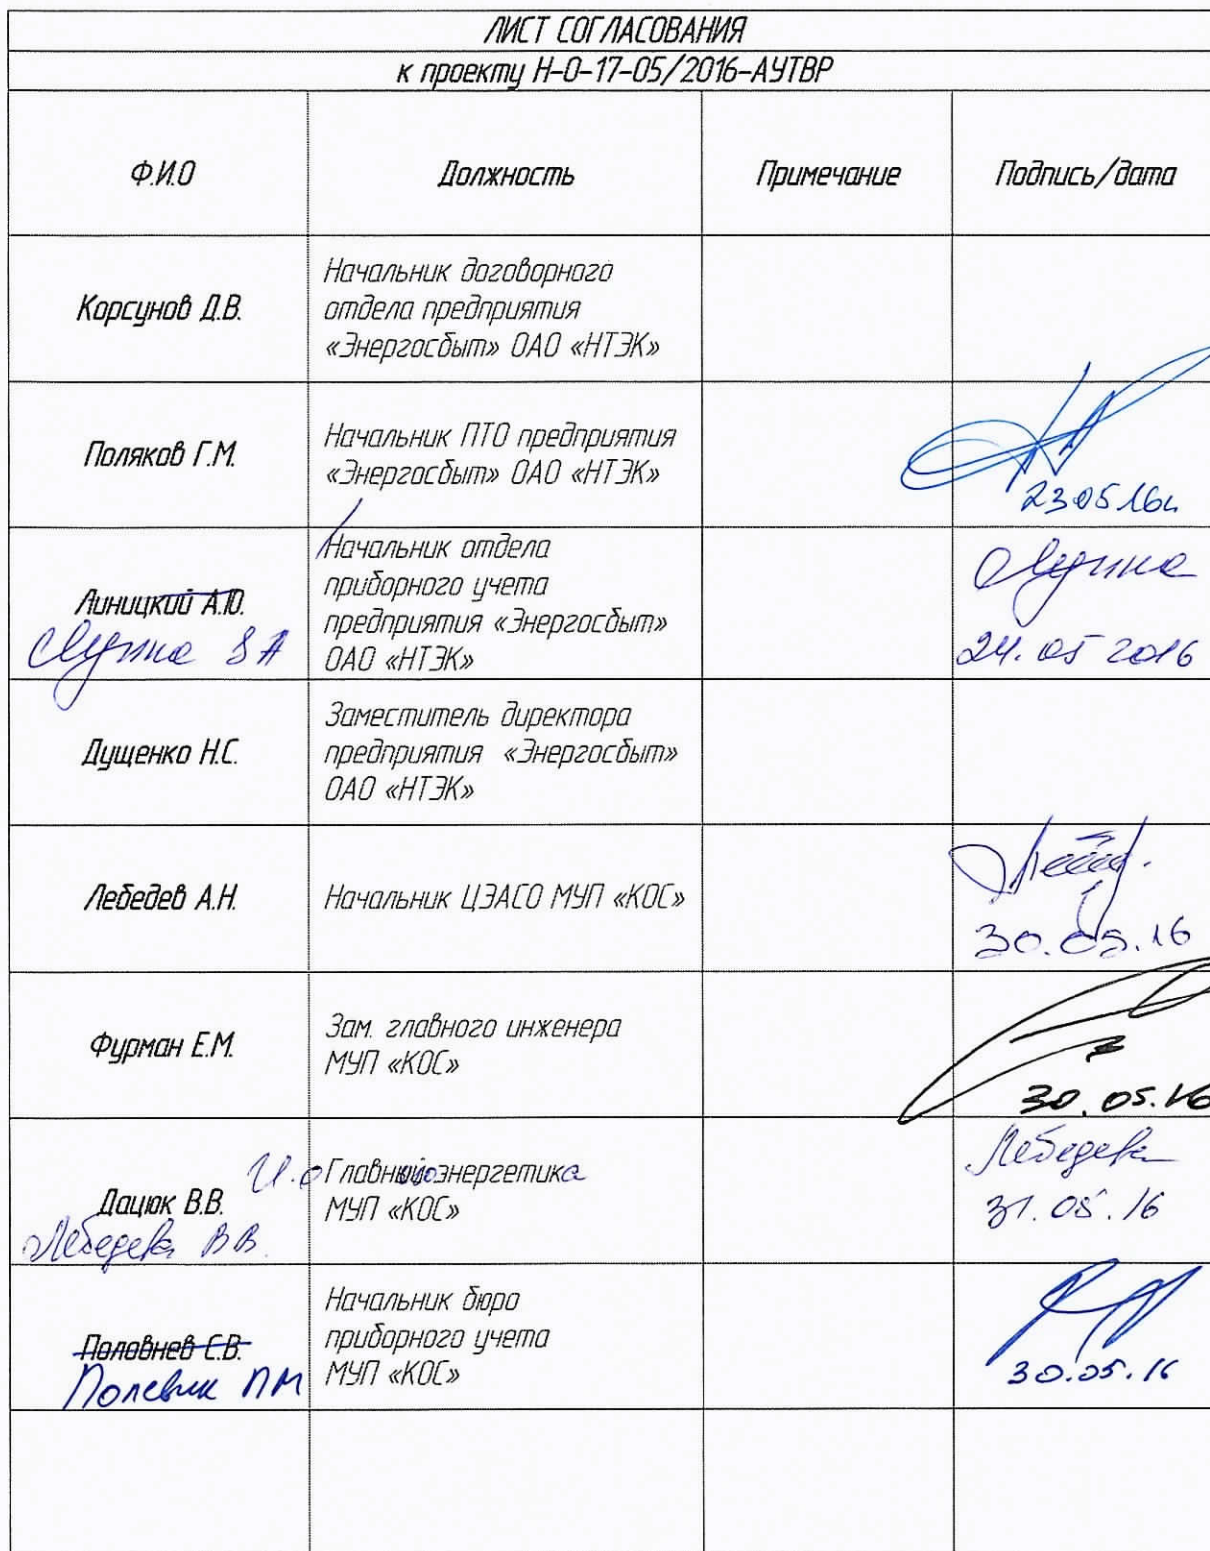 ЛИСТ СОГЛАСОВАНИЯ
к проекту Н-О-17-05/2016-АУТВР
Ф.И.О
Должность
Примечание
Подпись/дата
Корсунов Д.В.
Начальник договорного
отдела предприятия
«Энергосбыт» ОАО «НТЭК»
Поляков Г.М.
Начальник ПТО предприятия
«Энергосбыт» ОАО «НТЭК»
23 05 16г
Линицкий А.Ю.
Начальник отдела
приборного учета
предприятия «Энергосбыт»
ОАО «НТЭК»
24.05 2016
Дущенко Н.С.
Заместитель директора
предприятия «Энергосбыт»
ОАО «НТЭК»
Лебедев А.Н.
Начальник ЦЭАСО МУП «КОС»
30.05.16
Фурман Е.М.
Зам. главного инженера
МУП «КОС»
30.05.16
Дацюк В.В.
Лебедева В В.
И.о Главного энергетика
МУП «КОС»
Лебедева
31.05.16
Половнев С.В.
Полевик ПМ
Начальник бюро
приборного учета
МУП «КОС»
30.05.16